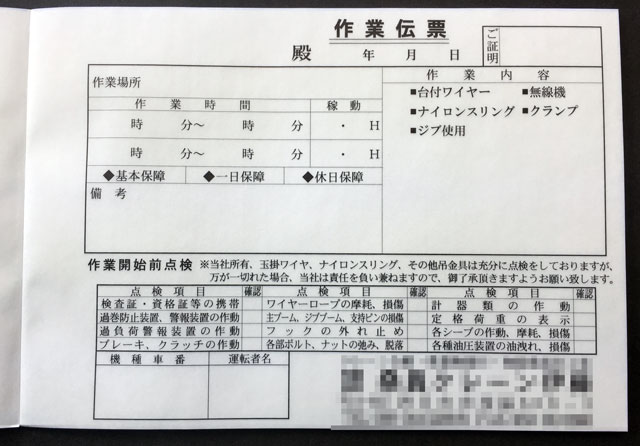 作業伝票
殿 年 月 日
ご証明
作業場所
作業時間 稼動
時 分～ 時 分 ・ H
時 分～ 時 分 ・ H
◆基本保障 ◆一日保障 ◆休日保障
備考
作業内容
■台付ワイヤー ■無線機
■ナイロンスリング ■クランプ
■ジブ使用
作業開始前点検 ※当社所有、玉掛ワイヤ、ナイロンスリング、その他吊金具は充分に点検をしておりますが、
万が一切れた場合、当社は責任を負い兼ねますので、御了承頂きますようお願い致します。
点検項目 確認 点検項目 確認 点検項目 確認
検査証・資格証等の携帯 ワイヤーロープの摩耗、損傷 計器類の作動
過巻防止装置、警報装置の作動 主ブーム、ジブブーム、支持ピンの損傷 定格荷重の表示
過負荷警報装置の作動 フックの外れ止め 各シーブの作動、摩耗、損傷
ブレーキ、クラッチの作動 各部ボルト、ナットの弛み、脱落 各種油圧装置の油洩れ、損傷
機種車番 運転者名